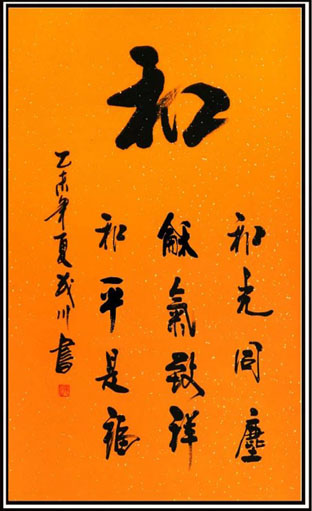 和
和光同塵
龢氣致祥
和平是福
乙未年夏川書